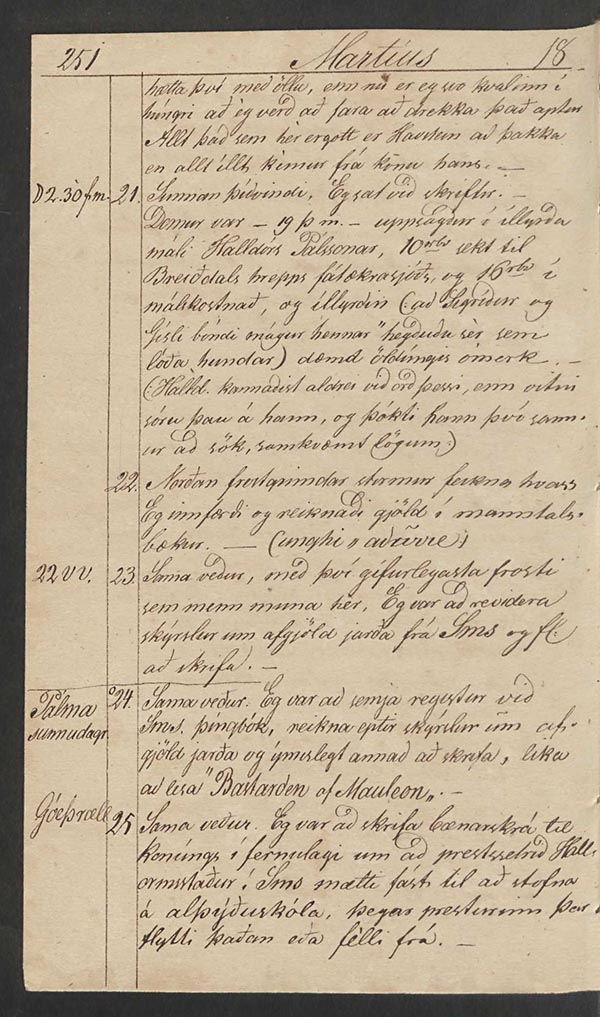 251 Martíus 18
hætta því með öllu, enn nú er eg svo kvalinn í
húngri að èg verð að fara að drekka það aptur
Allt það sem hèr er gott er Havstein að þakka
en allt íllt kèmur frá konu hans. —
D 2.30 f.m. 21. Sunnan þíðvindi, Eg sat við skriftir. —
Domur var — 19 þ m. — uppsagður í íllyrða
máli Halldórs Pálssonar, 10 rbr sekt til
Breiðdals hrepps fátækrasjóðs, og 16 rbr í
málskostnað, og íllyrðin (: að Sigríður og
Gísli bóndi mágur hennar "hegðuðu sèr sem
lóða hundar) dæmd öldúngis ómerk. —
(Halld. kannaðist aldrei við orð þessi, enn vitni
sóru þau á hann, og þókti hann því sann-
ur að sök, samkvæmt lögum.)
22. Norðan frostgrimdar stormur feikna hvass
Eg innfærði og reiknaði gjöld í manntals-
bækur. —
22 VV. 23. Sama veður, með því gífurlegasta frosti
sem menn muna hèr, Eg var að revidera
skýrslur um afgjöld jarða frá Sms og fl.
að skrifa. —
Pálma sunnudagr 24. Sama veður. Eg var að semja registur við
Sms. þíngbók, reikna eptir skýrslur um af-
gjöld jarða og ýmislegt annað að skrifa, líka
að lesa "Bastarden af Mauleon„. —
Góeþræll 25 Sama veður. Eg var að skrifa bænarskrá til
Konúngs í fernulagi um að prestssetrið Hall-
ormsstaður í Sms mætti fást til að stofna
á alþýðuskóla, þegar presturinn þar
flytti þaðan eða fèlli frá. —